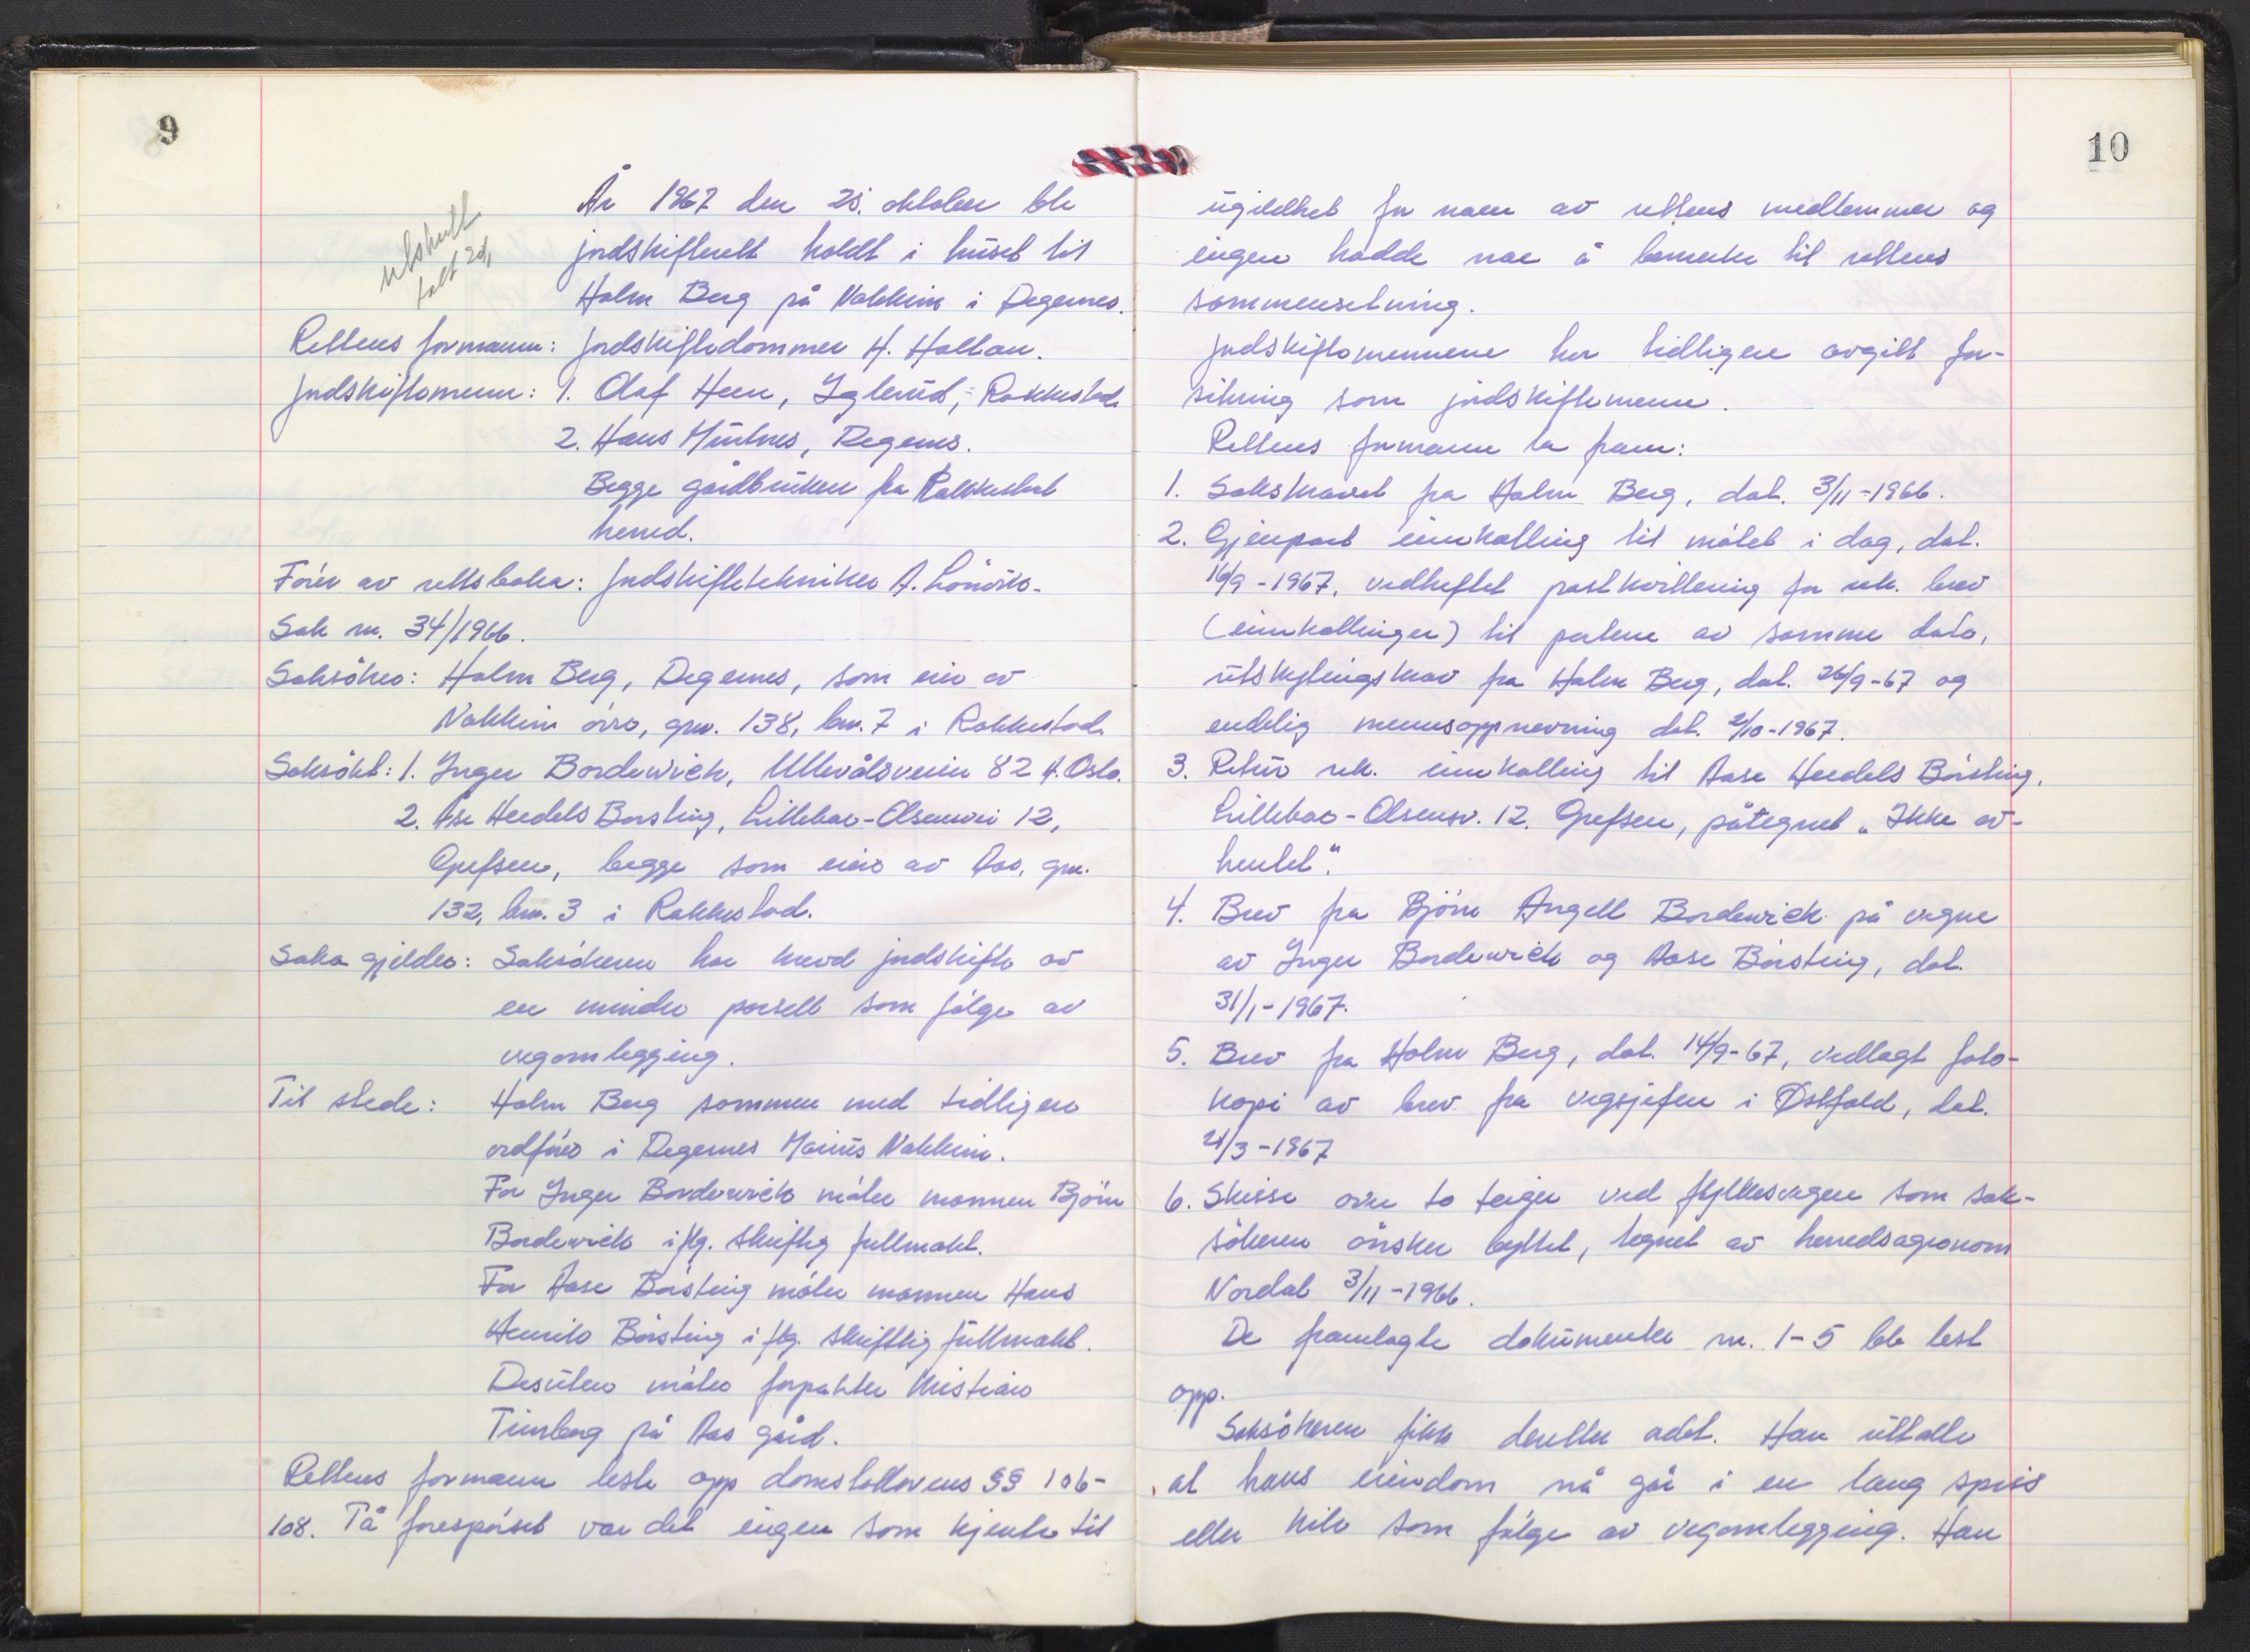 9
utskrift
År 1967 den 25. oktober ble
jordskifterett holdt i huset til
Holm Berg på Nakkim i Degernes.
Rettens formann: Jordskiftedommer H. Hallan.
Jordskiftemenn: 1. Olaf Heen, Yglerud, Rakkestad
2. Hans Myrtnes, Degernes.
Begge gårdbrukere fra Rakkestad
herred.
Fører av rettsboka: Jordskiftetekniker A. Lönvik.
Sak nr. 34/1966.
Saksöker: Holm Berg, Degernes, som eier av
Nakkim övre, gnr. 138, bnr. 7 i Rakkestad.
Saksökt: 1. Inger Bordewick, Ullevålsveien 82 A. Oslo.
2. Åse Heedels Börsting, Lillebar-Olsensvei 12,
Grefsen, begge som eier av Aas, gnr.
132, bnr. 3 i Rakkestad.
Saka gjelder: Saksökeren har krevd jordskifte av
en mindre parsell som fölge av
vegomlegging.
Til stede: Holm Berg sammen med tidligere
ordförer i Degernes Marius Nakkim.
For Inger Bordewick möter mannen Björn
Bordewick iflg. skriftlig fullmakt.
For Aase Börsting möter mannen Hans
Henrik Börsting iflg. skriftlig fullmakt.
Desuten möter forpakter Kristian
Timberg på Aas gård.
Rettens formann leste opp domstollovens §§ 106-
108. På forespörsel var det ingen som kjente til
10
ugildhet for noen av rettens medlemmer og
ingen hadde noe å bemerke til rettens
sammensetning.
Jordskiftemennene har tidligere avgitt for-
sikring som jordskiftemenn.
Rettens formann la fram:
1. Sakskravet fra Holm Berg, dat. 3/11-1966.
2. Gjenpart innkalling til mötet i dag, dat.
16/9-1967, vedheftet postkvittering for rek. brev
(innkallinger) til partene av samme dato,
utskytingskrav fra Holm Berg, dat. 26/9-67 og
endelig mennsoppnevning dat. 2/10-1967.
3. Retur rek. innkalling til Aase Heedels Börsting,
Lillebar-Olsensv. 12. Grefsen, påtegnet „Ikke av-
hentet".
4. Brev fra Björn Angell Bordewick på vegne
av Inger Bordewick og Aase Börsting, dat.
31/1-1967.
5. Brev fra Holm Berg, dat. 14/9-67, vedlagt foto-
kopi av brev fra vegsjefen i Østfold, dat.
21/3-1967
6. Skisse over to teiger ved fylkesvegen som sak-
sökeren önsker byttet, tegnet av herredsagronom
Nordal 3/11-1966.
De framlagte dokumenter nr. 1-5 ble lest
opp.
Saksökeren fikk deretter ordet. Han uttalte
at hans eiendom nå går i en lang spiss
eller kile som fölge av vegomlegging. Han